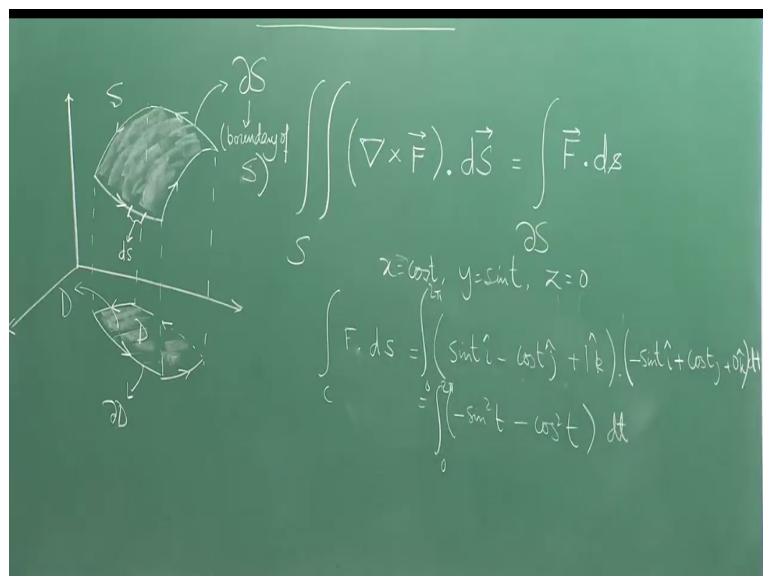 S
∂S
(boundary of S)
ds
D
D
∂D
∬_S (∇ × F⃗) . dS⃗ = ∫_∂S F⃗ . ds
x = cost, y = sint, z = 0
∫_C F . ds = ∫_0^2π (sint î - cost ĵ + 1 k̂) . (-sint î + cost ĵ + 0 k̂) dt
= ∫_0^2π (-sin²t - cos²t) dt